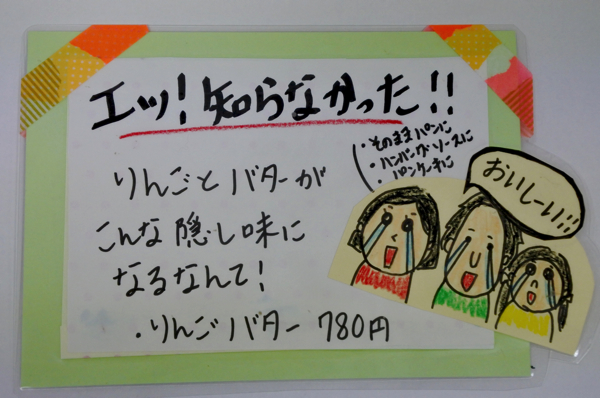 エッ!知らなかった!!
・そのままパンに
・ハンバーグソースに
・パンケーキに
りんごとバターが
こんな隠し味に
なるなんて!
・りんごバター 780円
おいしーい!!